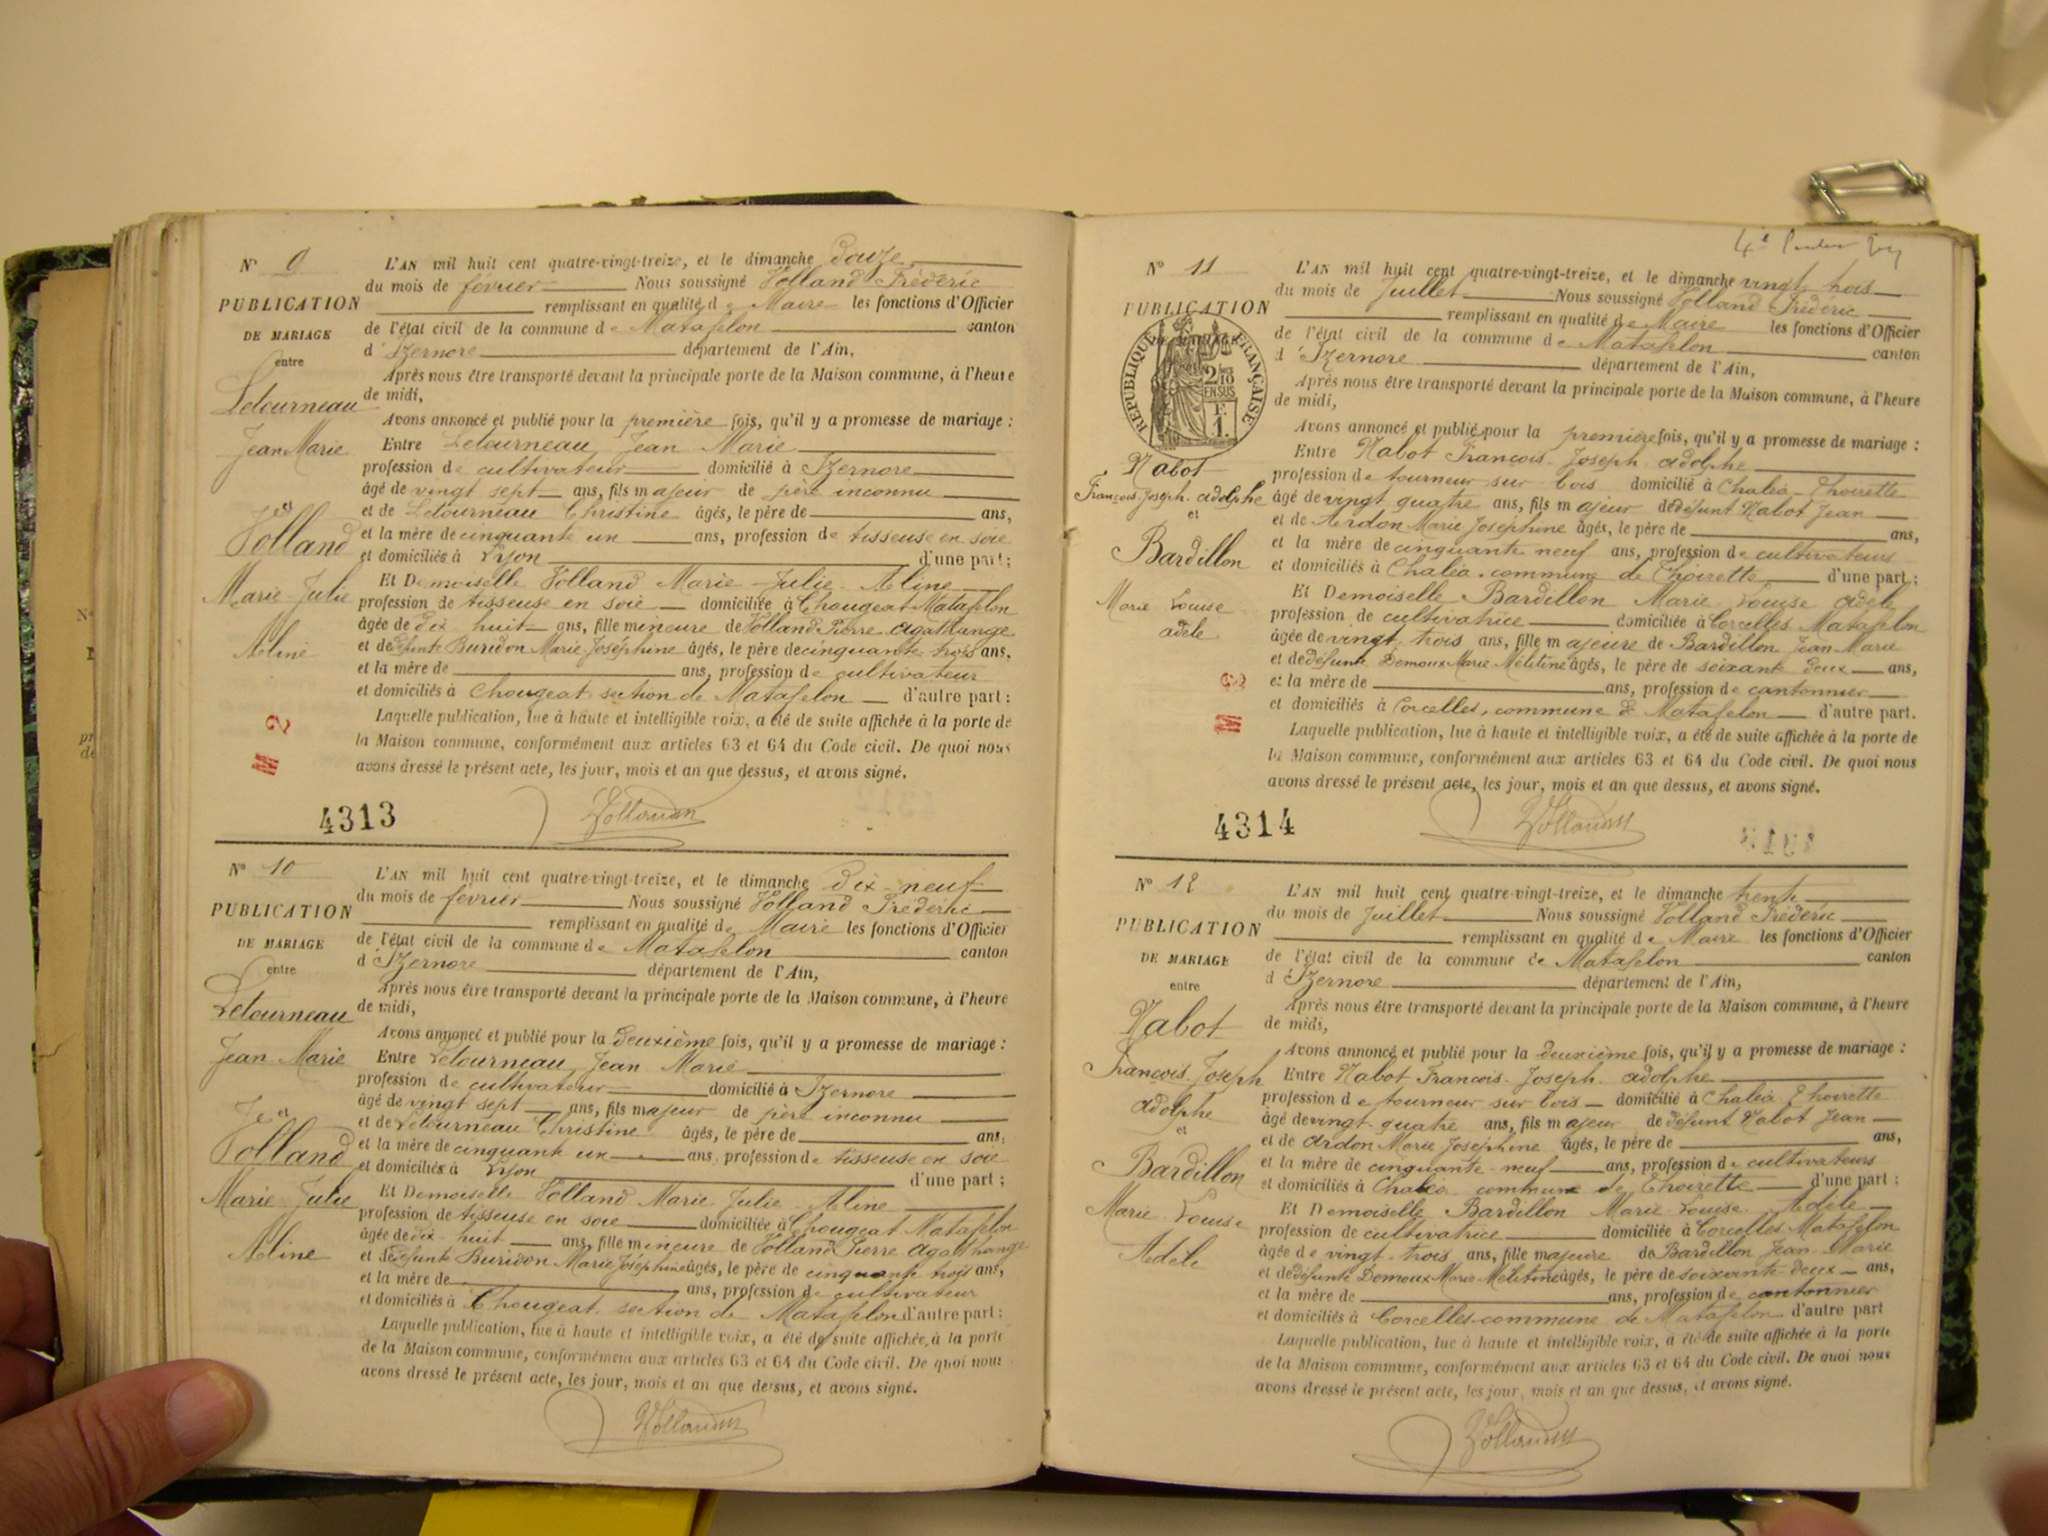 N° 9
PUBLICATION
DE MARIAGE
entre
Letourneau
Jean Marie
et
Volland
Marie Julie
Aline
L'AN mil huit cent quatre-vingt-treize, et le dimanche douze
du mois de février Nous soussigné Volland Frédéric
remplissant en qualité de Maire les fonctions d'Officier
de l'état civil de la commune de Matafelon canton
d'Izernore département de l'Ain,
Après nous être transporté devant la principale porte de la Maison commune, à l'heure
de midi,
Avons annoncé et publié pour la première fois, qu'il y a promesse de mariage :
Entre Letourneau Jean Marie
profession de cultivateur domicilié à Izernore
âgé de vingt sept ans, fils majeur de père inconnu
et de Letourneau Christine âgés, le père de ans,
et la mère de cinquante un ans, profession de tisseuse en soie
et domiciliés à Lyon d'une part;
Et Demoiselle Volland Marie Julie Aline
profession de tisseuse en soie domiciliée à Chougeat Matafelon
âgée de dix huit ans, fille mineure de Volland Pierre Agathange
et de défunte Buridon Marie Joséphine âgés, le père de cinquante trois ans,
et la mère de ans, profession de cultivateur
et domiciliés à Chougeat section de Matafelon d'autre part :
Laquelle publication, lue à haute et intelligible voix, a été de suite affichée à la porte de
la Maison commune, conformément aux articles 63 et 64 du Code civil. De quoi nous
avons dressé le présent acte, les jour, mois et an que dessus, et avons signé.
M 2
4313
Vollandm
N° 10
PUBLICATION
DE MARIAGE
entre
Letourneau
Jean Marie
et
Volland
Marie Julie
Aline
L'AN mil huit cent quatre-vingt-treize, et le dimanche dix neuf
du mois de février Nous soussigné Volland Frédéric
remplissant en qualité de Maire les fonctions d'Officier
de l'état civil de la commune de Matafelon canton
d'Izernore département de l'Ain,
Après nous être transporté devant la principale porte de la Maison commune, à l'heure
de midi,
Avons annoncé et publié pour la deuxième fois, qu'il y a promesse de mariage :
Entre Letourneau Jean Marie
profession de cultivateur domicilié à Izernore
âgé de vingt sept ans, fils majeur de père inconnu
et de Letourneau Christine âgés, le père de ans,
et la mère de cinquante un ans, profession de tisseuse en soie
et domiciliés à Lyon d'une part ;
Et Demoiselle Volland Marie Julie Aline
profession de tisseuse en soie domiciliée à Chougeat Matafelon
âgée de dix huit ans, fille mineure de Volland Pierre Agathange
et de défunte Buridon Marie Joséphine âgés, le père de cinquante trois ans,
et la mère de ans, profession de cultivateur
et domiciliés à Chougeat section de Matafelon d'autre part :
Laquelle publication, lue à haute et intelligible voix, a été de suite affichée, à la porte
de la Maison commune, conformément aux articles 63 et 64 du Code civil. De quoi nous
avons dressé le présent acte, les jour, mois et an que dessus, et avons signé.
Vollandm
4e
N° 11
PUBLICATION
DE MARIAGE
RÉPUBLIQUE FRANÇAISE
2/10 EN SUS
F. 1.
Nabot
François Joseph adolphe
et
Bardillon
Marie Louise
adèle
L'AN mil huit cent quatre-vingt-treize, et le dimanche vingt trois
du mois de Juillet Nous soussigné Volland Frédéric
remplissant en qualité de Maire les fonctions d'Officier
de l'état civil de la commune de Matafelon canton
d'Izernore département de l'Ain,
Après nous être transporté devant la principale porte de la Maison commune, à l'heure
de midi,
Avons annoncé et publié pour la première fois, qu'il y a promesse de mariage :
Entre Nabot François Joseph adolphe
profession de tourneur sur bois domicilié à Chaléa Thoirette
âgé de vingt quatre ans, fils majeur de défunt Nabot Jean
et de Ardon Marie Josephine âgés, le père de ans,
et la mère de cinquante neuf ans, profession de cultivateurs
et domiciliés à Chaléa commune de Thoirette d'une part ;
Et Demoiselle Bardillon Marie Louise adèle
profession de cultivatrice domiciliée à Corcelles Matafelon
âgée de vingt trois ans, fille majeure de Bardillon Jean Marie
et de défunte Demoux Marie Mélitine âgés, le père de soixante deux ans,
et la mère de ans, profession de cantonnier
et domiciliés à Corcelles, commune de Matafelon d'autre part.
Laquelle publication, lue à haute et intelligible voix, a été de suite affichée à la porte de
la Maison commune, conformément aux articles 63 et 64 du Code civil. De quoi nous
avons dressé le présent acte, les jour, mois et an que dessus, et avons signé.
M 3
4314
Vollandm
N° 12
PUBLICATION
DE MARIAGE
entre
Nabot
François Joseph
adolphe
et
Bardillon
Marie Louise
Adèle
L'AN mil huit cent quatre-vingt-treize, et le dimanche trente
du mois de Juillet Nous soussigné Volland Frédéric
remplissant en qualité de Maire les fonctions d'Officier
de l'état civil de la commune de Matafelon canton
d'Izernore département de l'Ain,
Après nous être transporté devant la principale porte de la Maison commune, à l'heure
de midi,
Avons annoncé et publié pour la deuxième fois, qu'il y a promesse de mariage :
Entre Nabot François Joseph adolphe
profession de tourneur sur bois domicilié à Chaléa Thoirette
âgé de vingt quatre ans, fils majeur de défunt Nabot Jean
et de ardon Marie Josephine âgés, le père de ans,
et la mère de cinquante neuf ans, profession de cultivateurs
et domiciliés à Chaléa commune de Thoirette d'une part ;
Et Demoiselle Bardillon Marie Louise Adèle
profession de cultivatrice domiciliée à Corcelles Matafelon
âgée de vingt trois ans, fille majeure de Bardillon Jean Marie
et de défunte Demoux Marie Mélitine âgés, le père de soixante deux ans,
et la mère de ans, profession de cantonnier
et domiciliés à Corcelles commune de Matafelon d'autre part
Laquelle publication, lue à haute et intelligible voix, a été de suite affichée à la porte
de la Maison commune, conformément aux articles 63 et 64 du Code civil. De quoi nous
avons dressé le présent acte, les jour, mois et an que dessus, et avons signé.
Vollandm